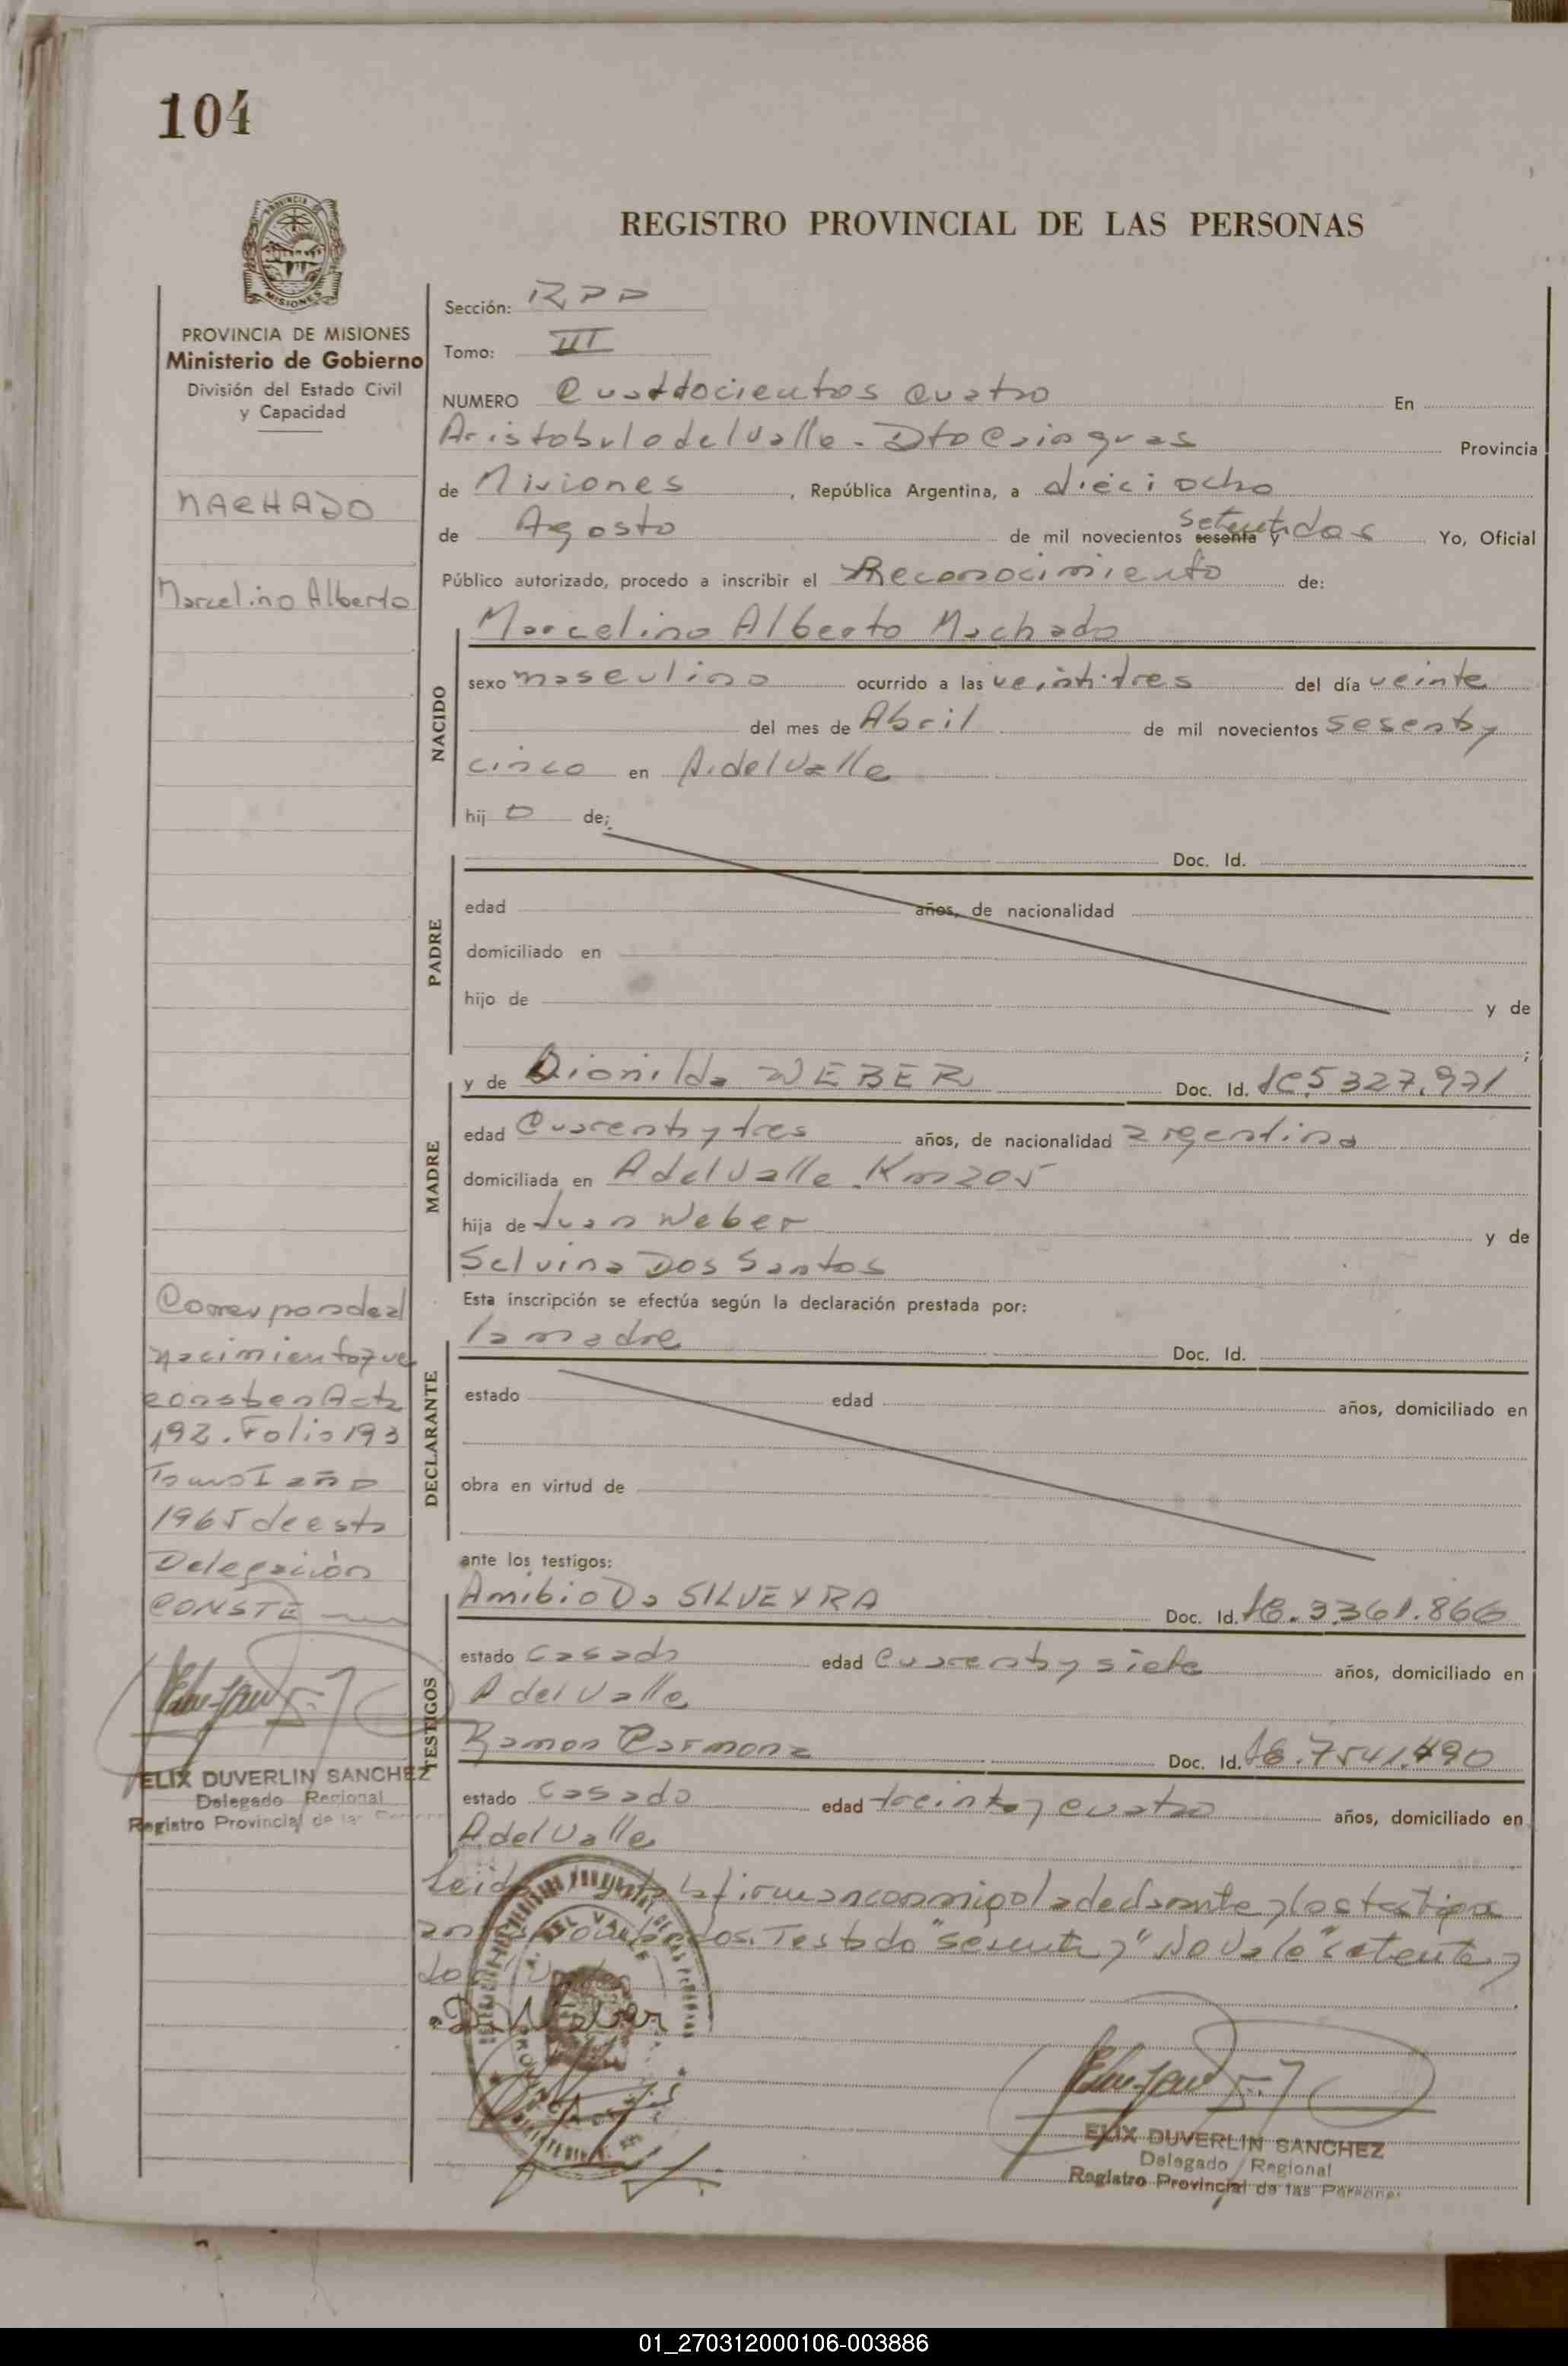 104
REGISTRO PROVINCIAL DE LAS PERSONAS
PROVINCIA DE MISIONES
Ministerio de Gobierno
División del Estado Civil
y Capacidad
MACHADO
Marcelino Alberto
Sección: RPP
Tomo: III
NUMERO Cuattocientos Cuatro En
Aristobulo del Valle - Dto Cainguas Provincia
de Misiones, República Argentina, a dieciocho
de Agosto de mil novecientos sesenta y setenta y dos Yo, Oficial
Público autorizado, procedo a inscribir el Reconocimiento de:
NACIDO
Marcelino Alberto Machado
sexo masculino ocurrido a las veintitres del día veinte
del mes de Abril de mil novecientos sesenta y
cinco en A. del Valle
hijo de;
PADRE
Doc. Id.
edad años, de nacionalidad
domiciliado en
hijo de y de
;
MADRE
y de Dionilda WEBER Doc. Id. 5327.971
edad Cuarenta y tres años, de nacionalidad argentina
domiciliada en A del Valle. Km 205
hija de Juan Weber y de
Selvina Dos Santos
Esta inscripción se efectúa según la declaración prestada por:
DECLARANTE
la madre Doc. Id.
estado edad años, domiciliado en
obra en virtud de
ante los testigos:
TESTIGOS
Amibio Da SILVEYRA Doc. Id. 3361.866
estado Casado edad Cuarenta y siete años, domiciliado en
A del Valle
Ramon Carmona Doc. Id. 7541.490
estado Casado edad treinta y cuatro años, domiciliado en
A del Valle
Leida firman conmigo la declarante y los testigos
Testado "sesenta y" No Vale "setenta y
D. Weber
Corresponde al
nacimiento que
consta en Acta
192. Folio 193
Tomo I año
1965 de esta
Delegación
CONSTE
ELIX DUVERLIN SANCHEZ
Delegado Regional
Registro Provincial de las
ELIX DUVERLIN SANCHEZ
Delegado Regional
Registro Provincial de las Personas
01_270312000106-003886